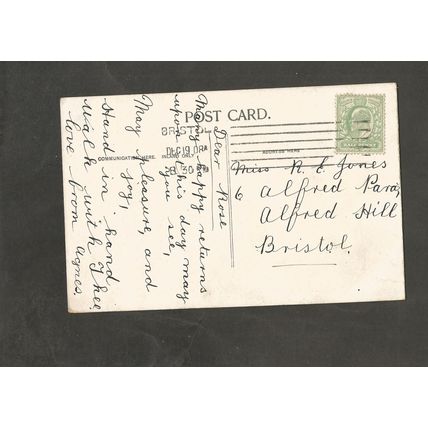 POST CARD.
BRISTOL
DEC 19 0
8 30 P
COMMUNICATION HERE. INLAND ONLY
ADDRESS HERE
HALF PENNY
Dear Rose
Many happy returns
upon this day may
you see,
May pleasure, and
joy,
Hand in hand
walk with thee.
love from Agnes.
Miss R. E. Jones
6 Alfred Para,
Alfred Hill
Bristol.